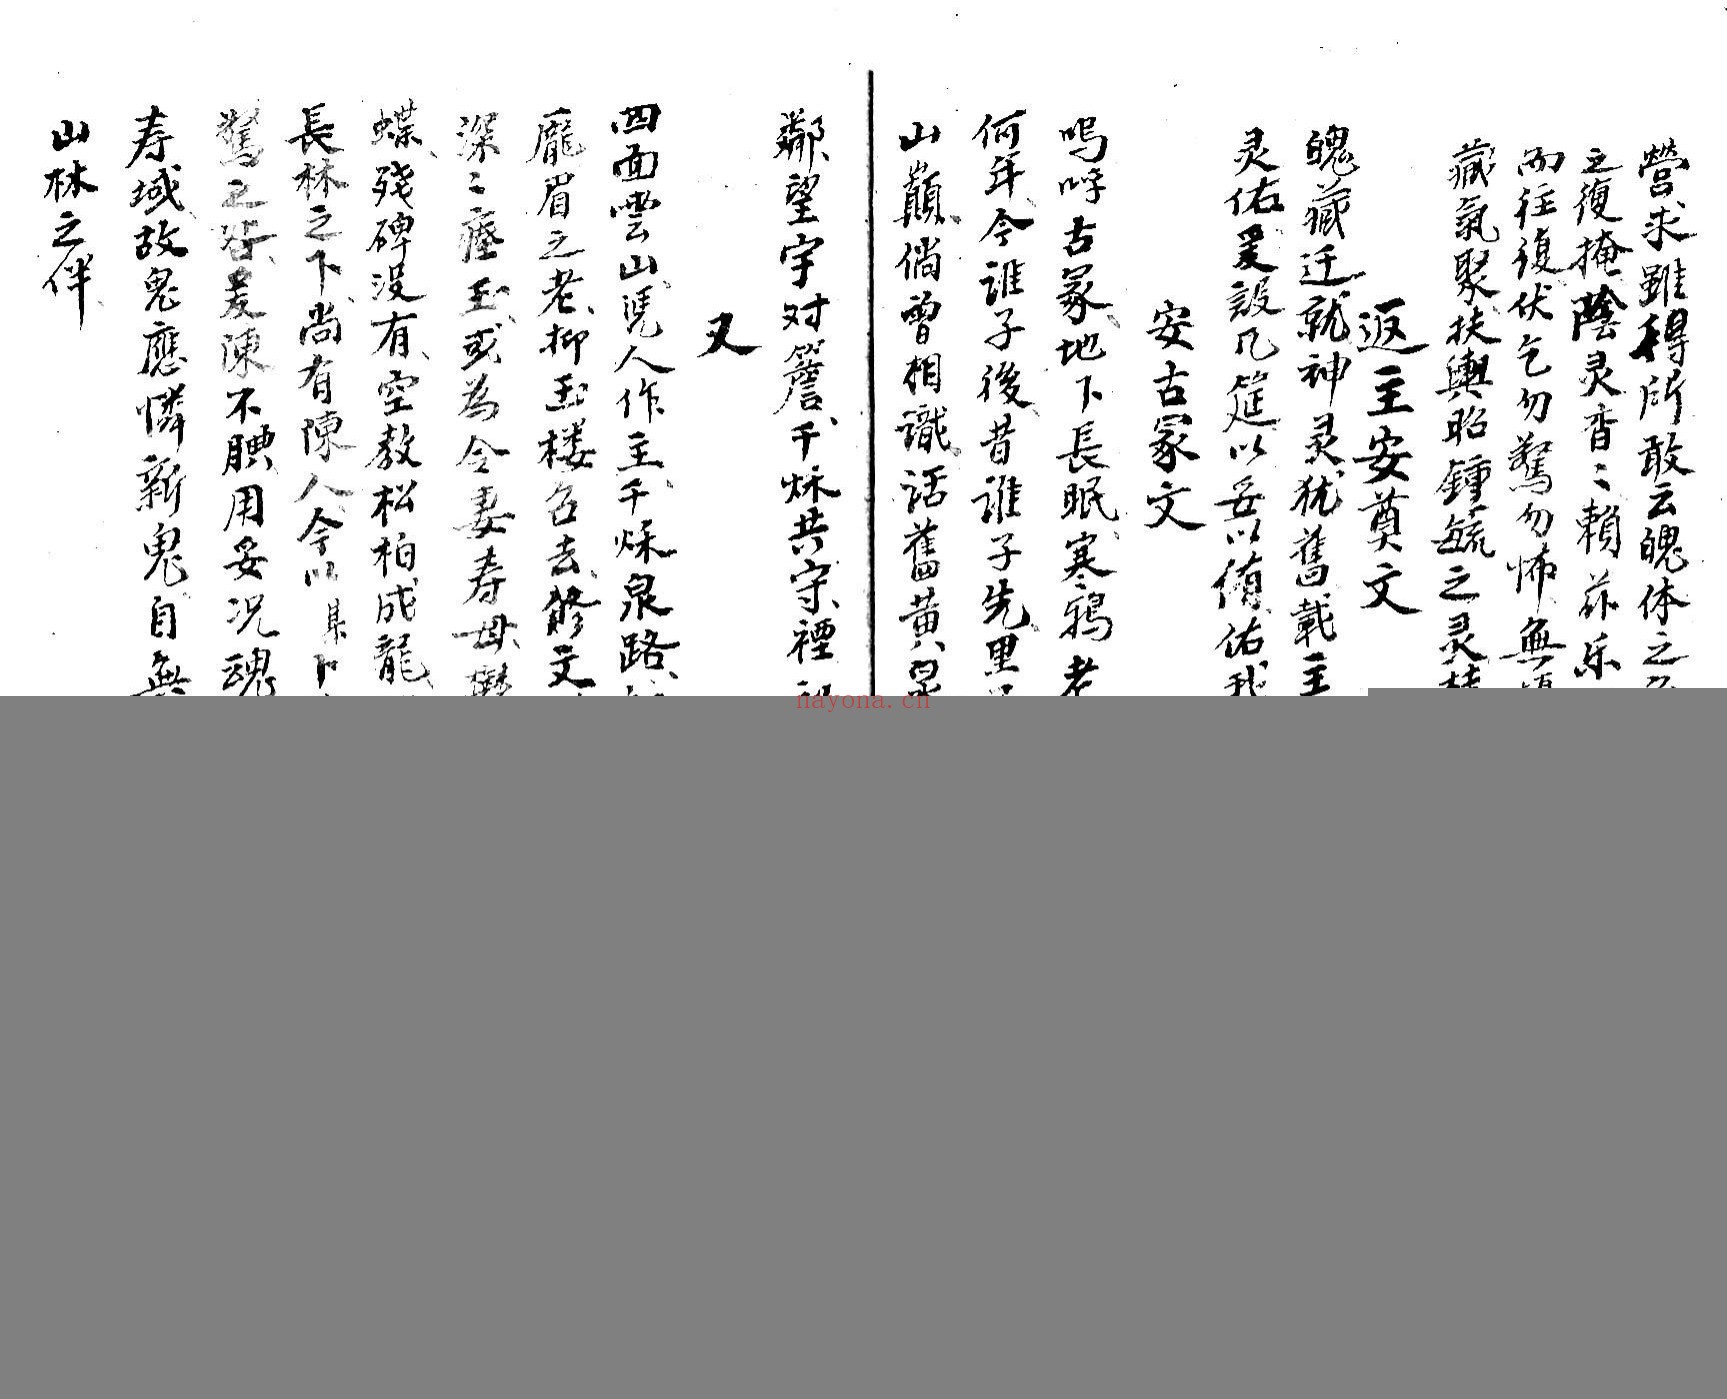 營求雖得所敢云魄体之
之復掩陰灵杳〻賴茲乐
而往復伏乞勿驚勿怖無
藏氣聚扶輿昭鍾毓之灵
返主安奠文
魄藏迁就神灵犹舊載主
灵佑爰設几筵以妥以侑佑我
安古冢文
嗚呼古冢地下長眠寒鴉老
何年今誰子後昔誰子先里
山巔倘曾相識話舊黄泉
鄰望宇对簷千烁共守禋
又
四面雲山凭人作主千烁泉路
龐眉之老抑玉楼召去修文
深〻瘗玉或為令妻寿母
蝶殘碑没有空教松柏成龍
長林之下尚有陳人今以 卜
驚之咎爰陳不腆用妥况魂
寿域故鬼應憐新鬼自無
山林之伴
nayona.cn